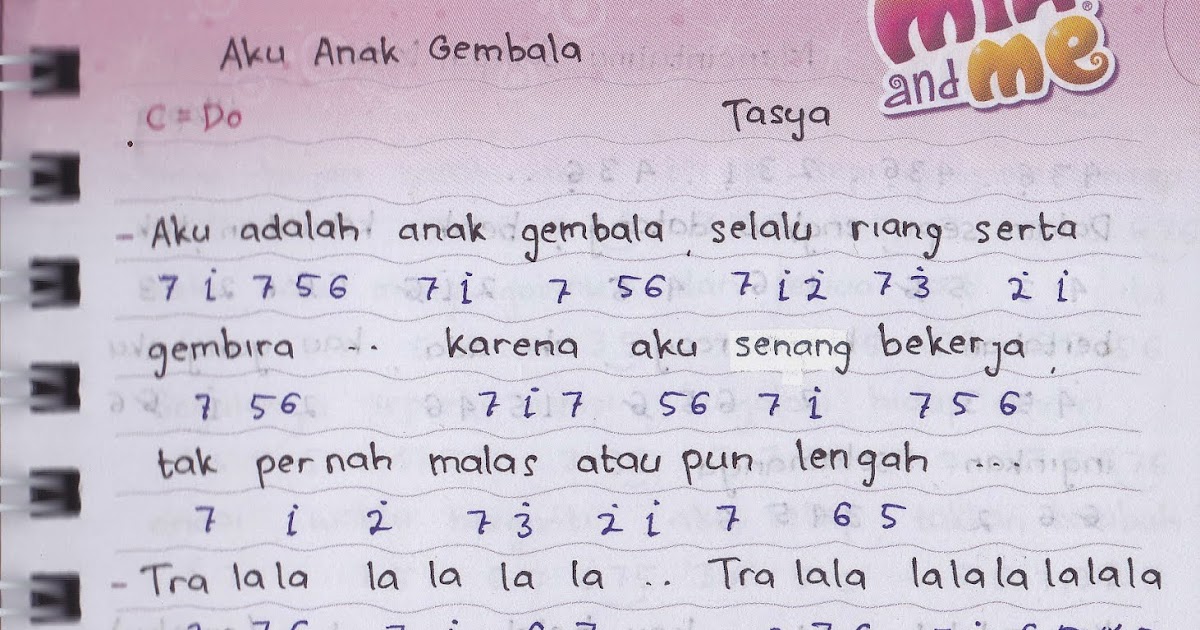 Aku Anak Gembala
MIA and me®
C = Do
Tasya
- Aku adalah anak gembala selalu riang serta
7 i̇ 7 5 6 7 i̇ 7 5 6 7 i̇ 2̇ 7 3̇ 2̇ i̇
gembira ... karena aku senang bekerja,
7 5 6 7 i̇ 7 5 6 7 i̇ 7 5 6
tak pernah malas atau pun lengah ....
7 i̇ 2̇ 7 3̇ 2̇ i̇ 7 6 5
- Tra la la la la la la .. Tra lala lalalalalala